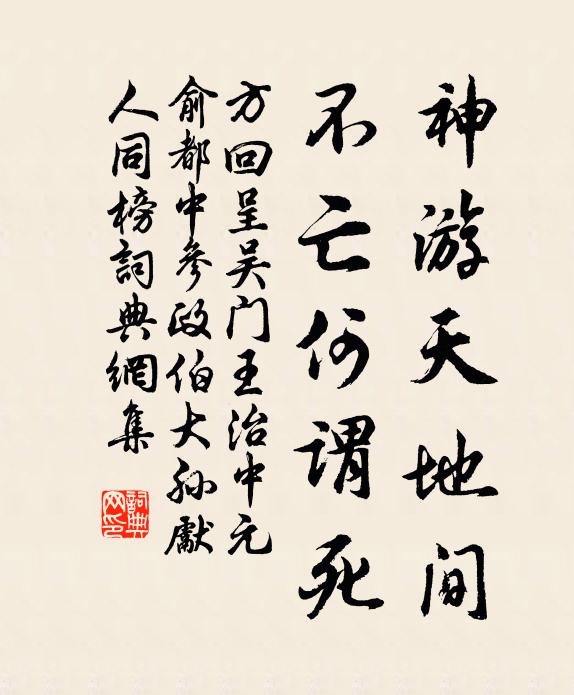 神游天地间
不亡何谓死
方回呈吴门王治中元
俞都中参政伯大孙献
人同榜詞典網集
詞典网印